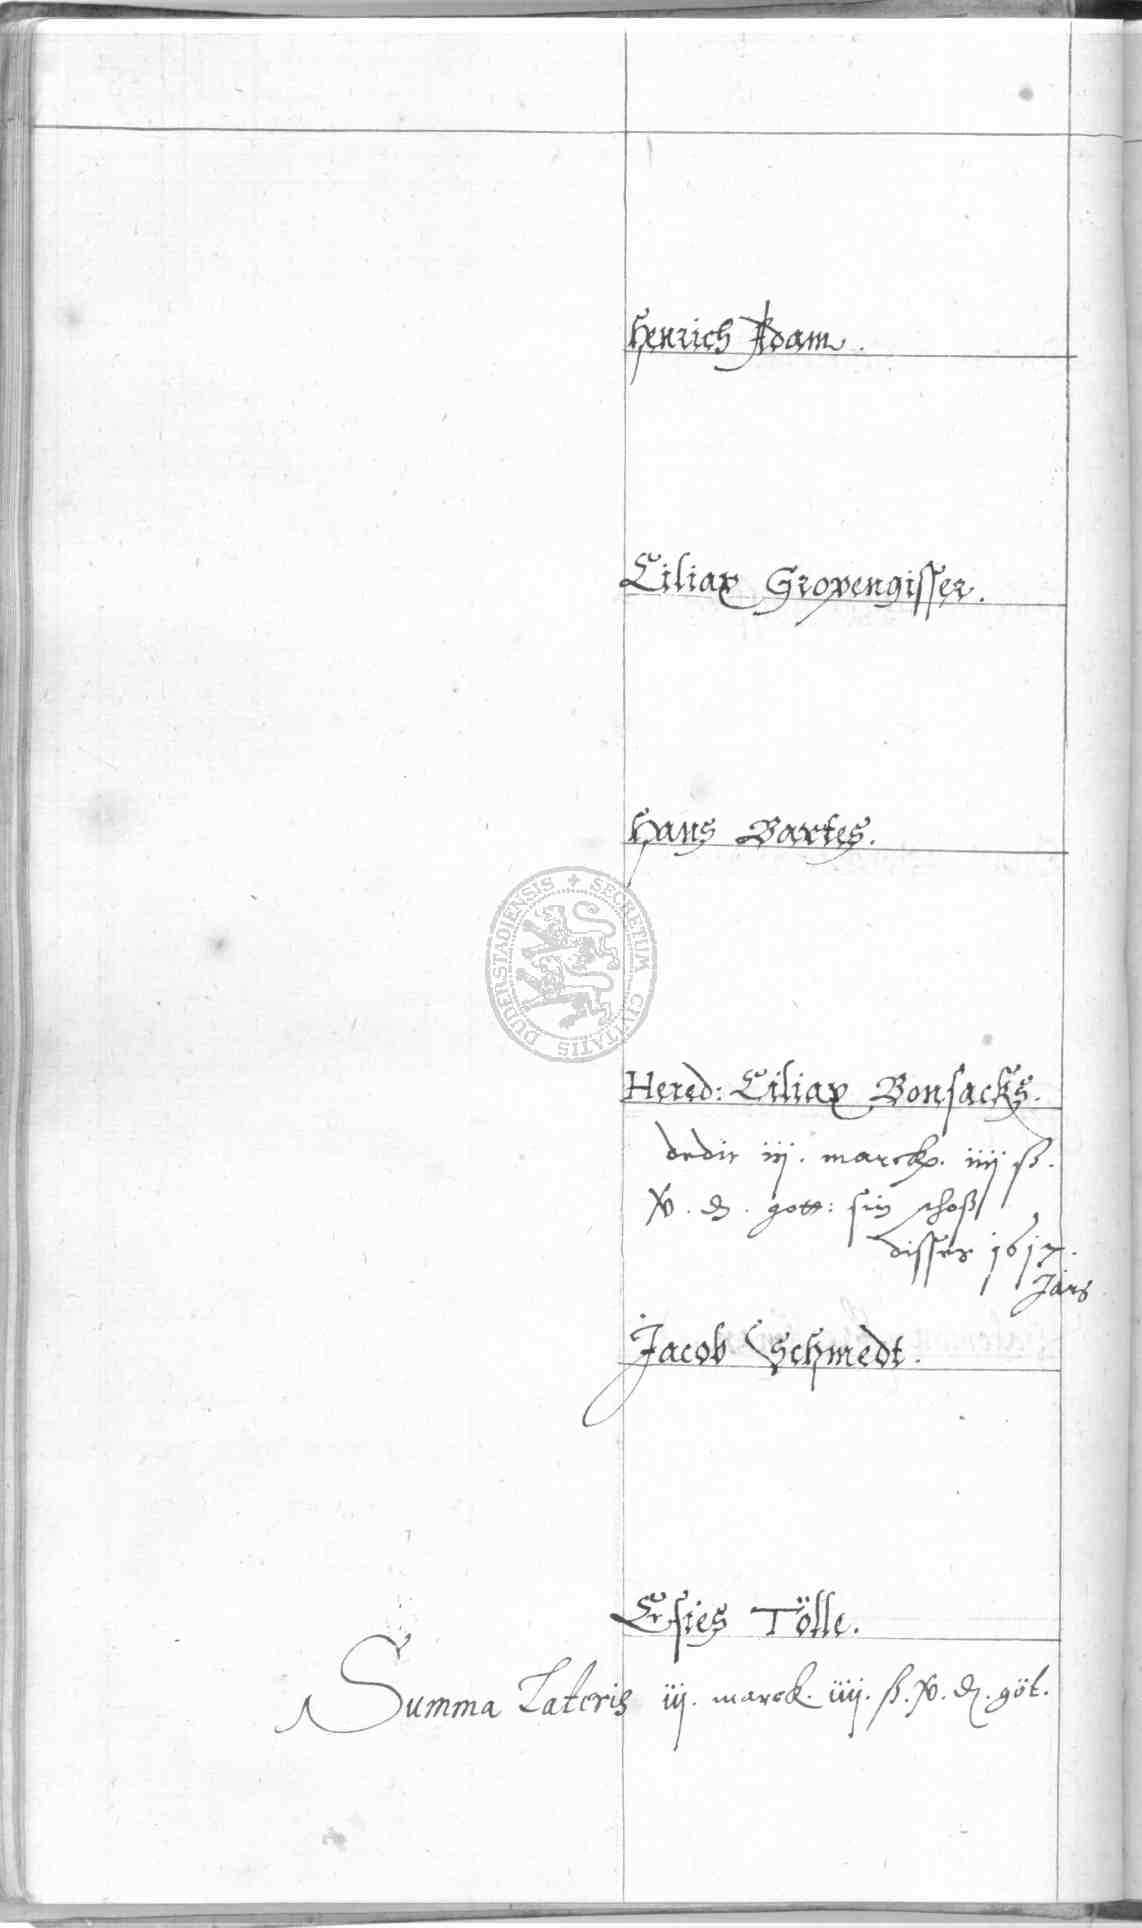 Henrich Adam.
Ciliax Gropengisser.
Hans Bartes.
DUDERSTADIENSIS + SECRETUM CIVITATIS
Hered: Ciliax Bonsacks.
dedit iij. marck. iiij ß.
gott: sin schoß
disser 1617.
Jars
Jacob Schmedt.
Esies Tölle.
Summa Lateris iij. marck. iiij. ß. göt.